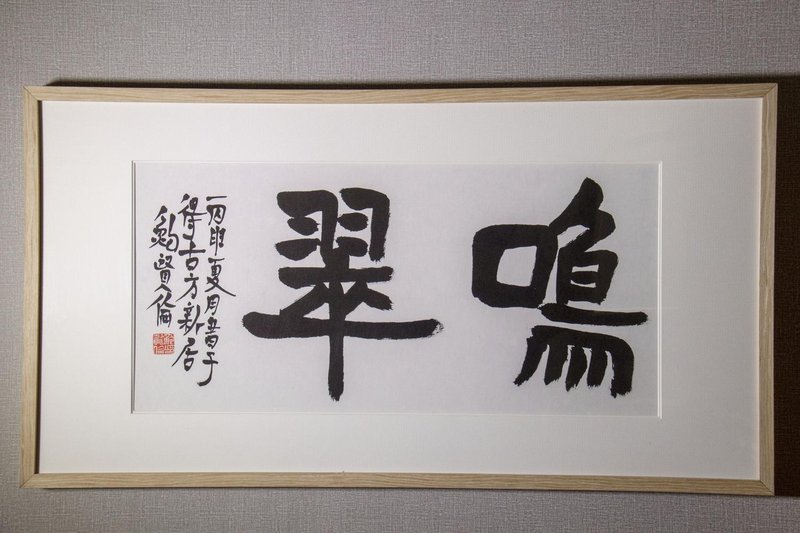 鳴翠
丙申夏月書于
得古方新居
鞠賢倫